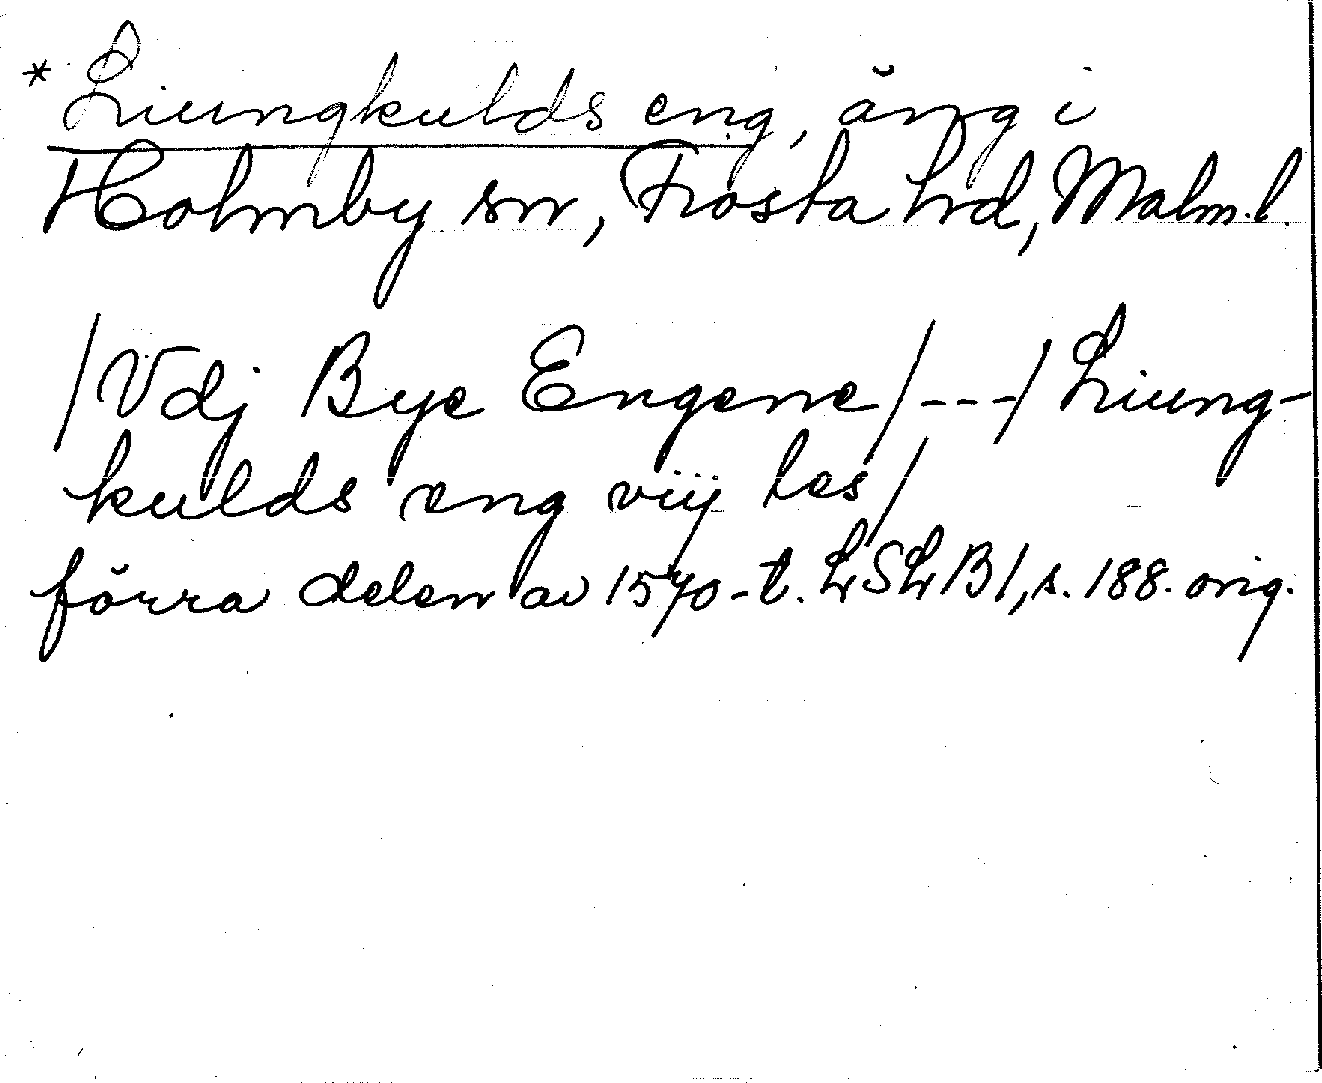 * Liungkulds eng, äng i
Holmby sn, Frosta hrd, Malm. l.
/Vdj Bye Engene/---/Liung-
kulds eng viij les/
förra delen av 1570-t. LSLB1, s. 188. orig.